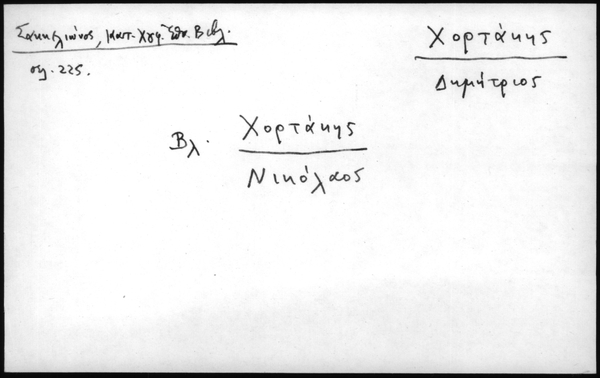 Σακκελιώνος, Κατ. Χγφ. Εθν. Βιβλ.
σελ. 225.
Χορτάκης
Δημήτριος
Βλ. Χορτάκης
Νικόλαος